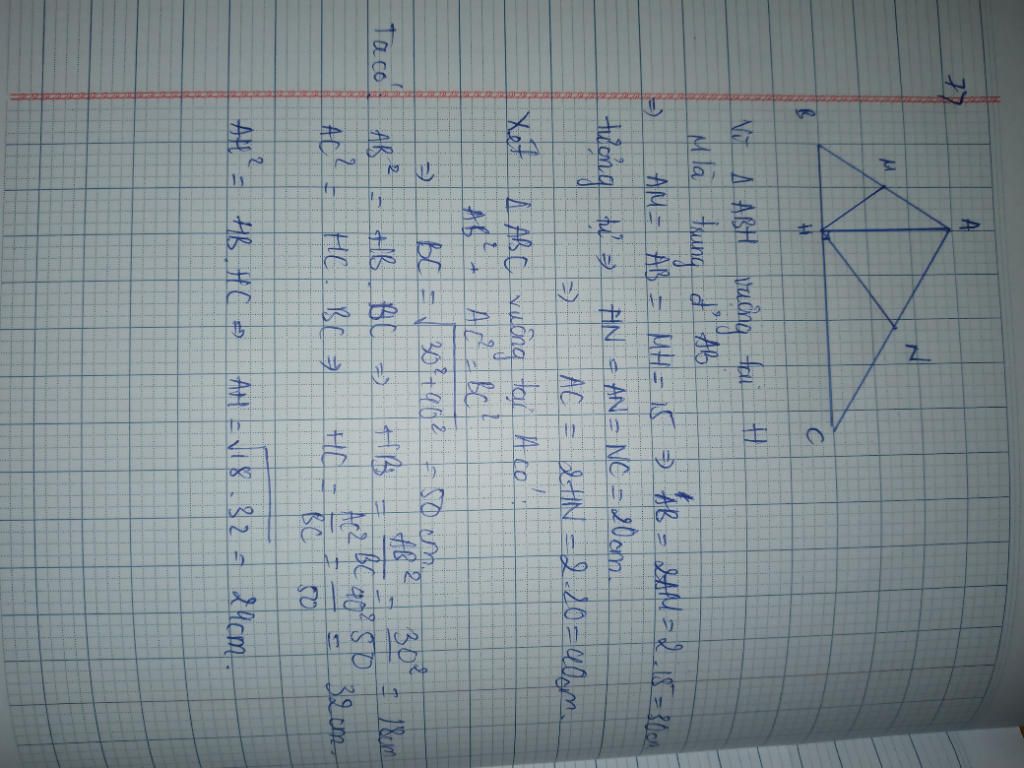 7)
A
M
N
B
H
C
Vì Δ ABH vuông tại H
M là trung đ' AB
=> AM = AB = MH = 15 => AB = 2AM = 2.15 = 30cm
tương tự => HN = AN = NC = 20cm.
=> AC = 2HN = 2.20 = 40cm.
Xét Δ ABC vuông tại A có:
AB² + AC² = BC²
=> BC = √30²+40² = 50 cm.
Ta có: AB² = HB. BC => HB = AB²/BC = 30²/50 = 18cm
AC² = HC. BC => HC = AC²/BC = 40²/50 = 32cm.
AH² = HB. HC => AH = √18.32 = 24cm.